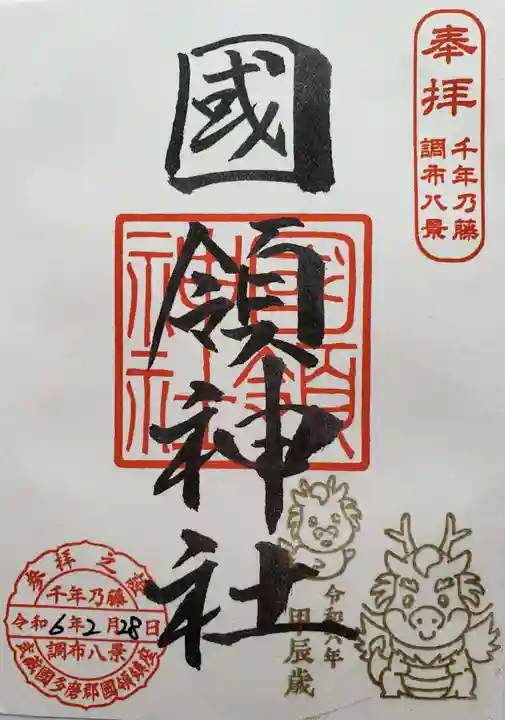 奉拝
千年乃藤
調布八景
國領神社
國領
神社
令和六年
甲辰歳
参拝之證
千年乃藤
令和6年2月28日
調布八景
武蔵國多磨郡國領鎮座